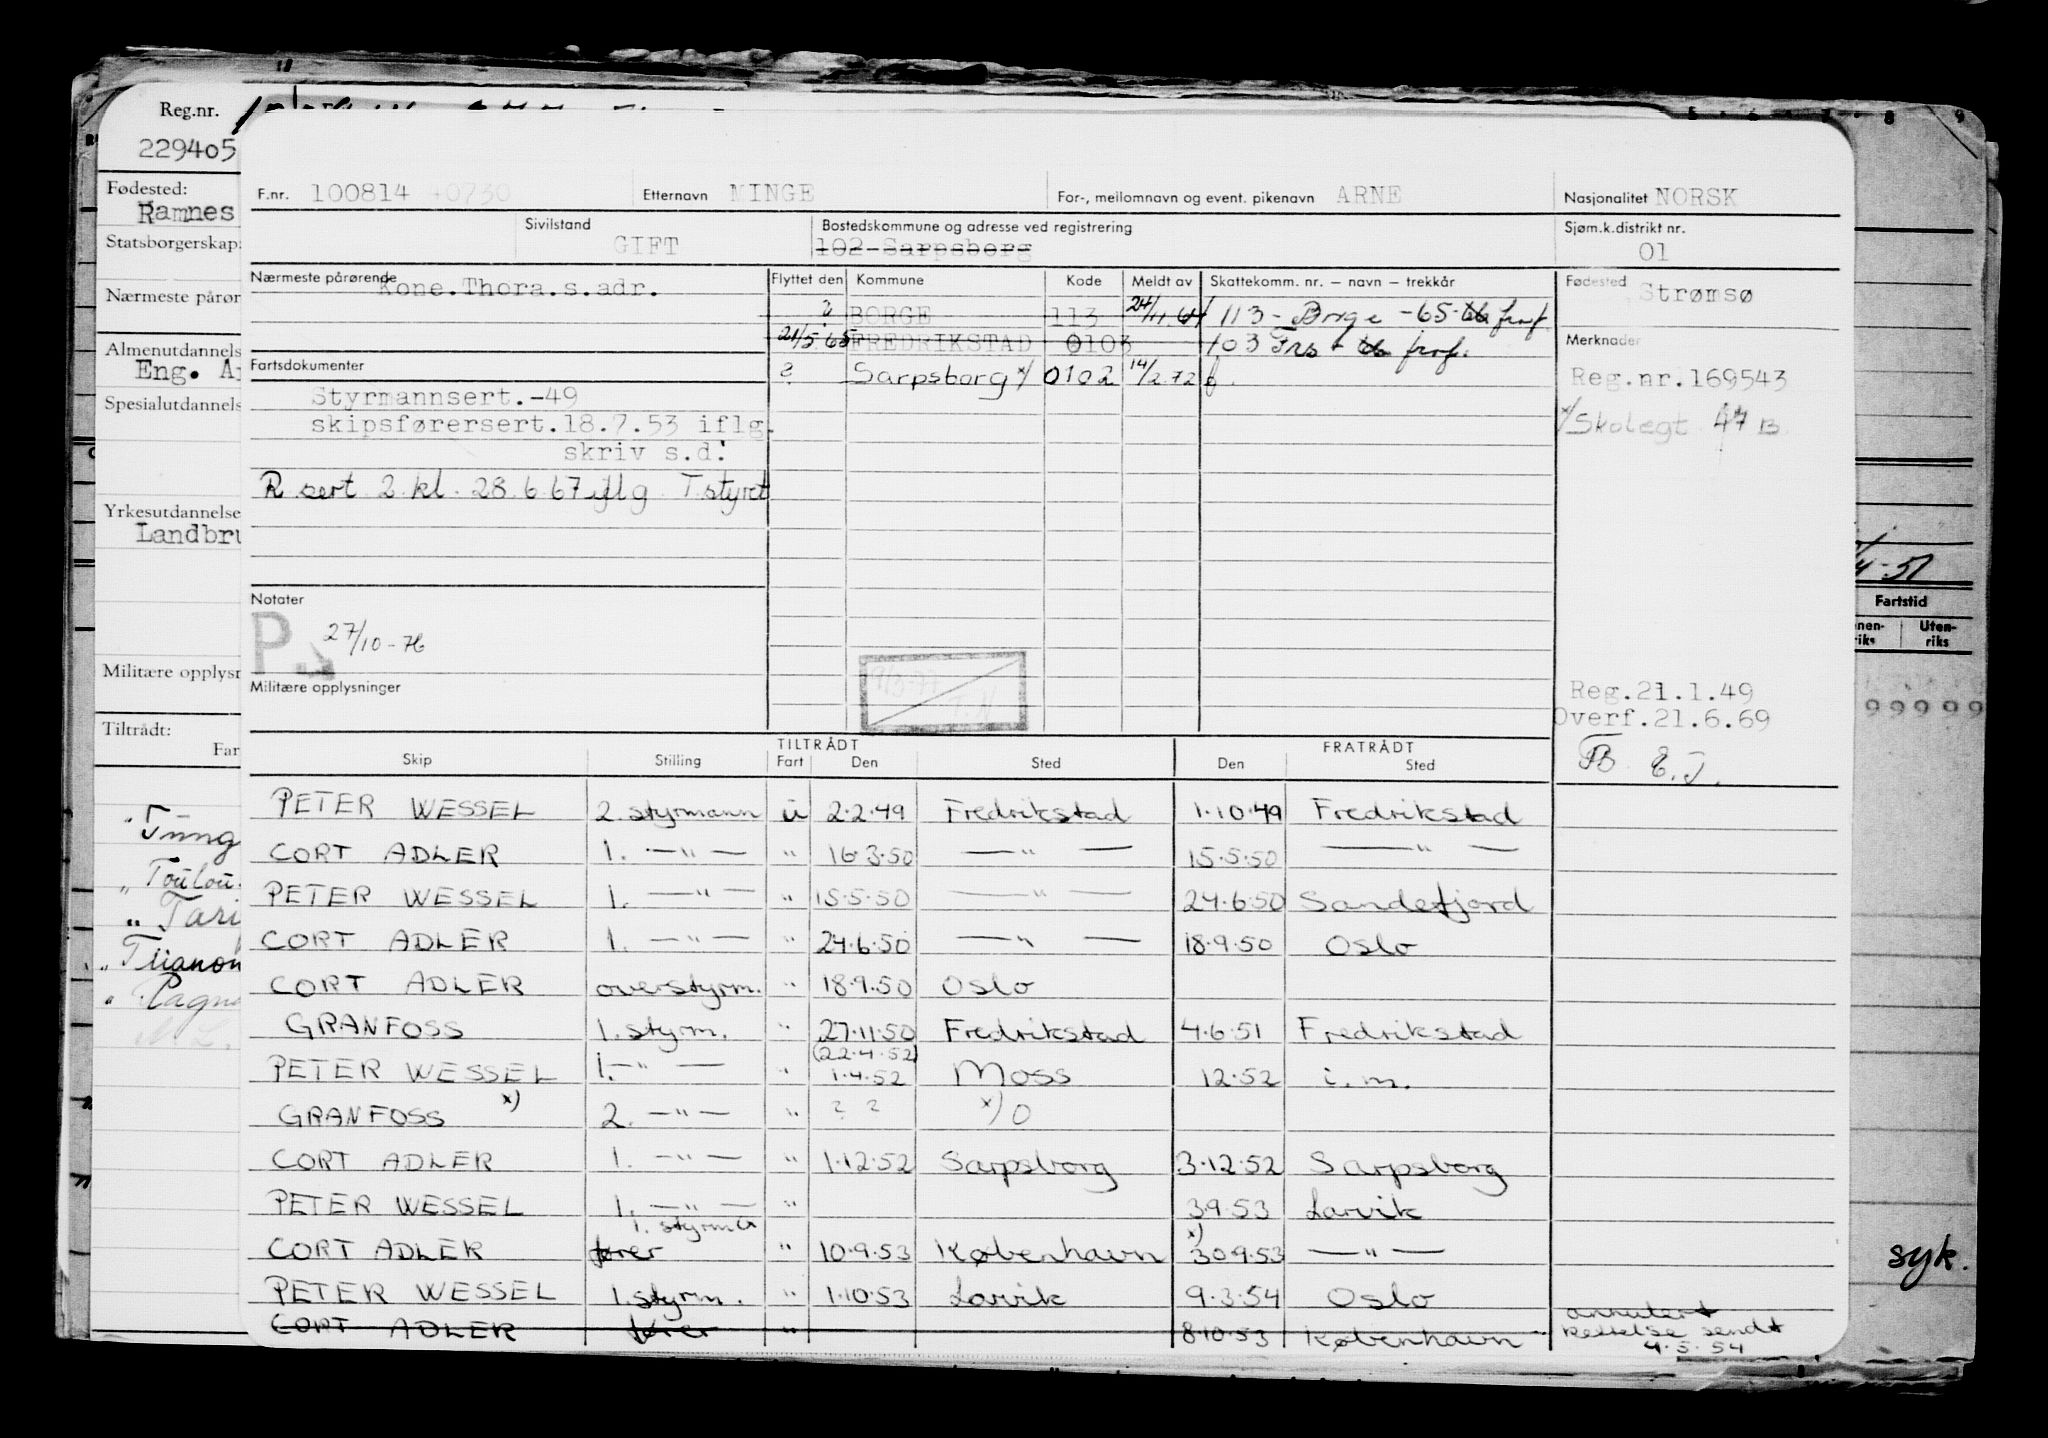 Reg.nr.
229405
Fødested:
Ramnes
Statsborgerskap:
Nærmeste pårør
Almenutdannels
Eng.
Spesialutdannels
Yrkesutdannelse
Landbru
Militære opplysn
Tiltrådt:
Far
"Tung
"Toulou.
"Tari
"Trianon
"Ragn
M.L.
F.nr. 100814 +0730 Etternavn MINGE For-, mellomnavn og event. pikenavn ARNE Nasjonalitet NORSK
Sivilstand GIFT Bostedskommune og adresse ved registrering 102-Sarpsborg Sjøm.k.distrikt nr. 01
Nærmeste pårørende Kone.Thora.s.adr.
Flyttet den Kommune Kode Meldt av Skattekomm. nr. – navn – trekkår
Fødested Strømsø
? BORGE 113 24/11.64 113 - Borge - 65
21/5.65 FREDRIKSTAD 0103 103 Frs
? Sarpsborg x/ 0102 14/2.72
Merknader
Reg.nr.169543
x/Skolegt 47 B
Fartsdokumenter
Styrmannsert.-49
skipsførersert.18.7.53 iflg.
skriv s.d.
R sert 2. kl. 28.6.67 iflg T.styret
Notater
P. 27/10-76
Militære opplysninger
9/3-77
T.N
Reg.21.1.49
Overf.21.6.69
E.J.
Skip Stilling TILTRÅDT Fart Den Sted FRATRÅDT Den Sted
PETER WESSEL 2. styrmann u 2.2.49 Fredrikstad 1.10.49 Fredrikstad
CORT ADLER 1. —"— " 16.3.50 —"— 15.5.50 —"—
PETER WESSEL 1. —"— " 15.5.50 —"— 24.6.50 Sandefjord
CORT ADLER 1. —"— " 24.6.50 —"— 18.9.50 Oslo
CORT ADLER overstyrm. " 18.9.50 Oslo
GRANFOSS 1. styrm. " 27.11.50 Fredrikstad 4.6.51 Fredrikstad
(22.4.52)
PETER WESSEL 1. —"— " 1.4.52 Moss 12.52 i.m.
GRANFOSS x) 2. —"— " ? ? x) 0
CORT ADLER 1. —"— " 1.12.52 Sarpsborg 3.12.52 Sarpsborg
PETER WESSEL 1. —"— " 3.9.53 Larvik
1. styrm a x)
CORT ADLER fører " 10.9.53 København 30.9.53 —"—
PETER WESSEL 1. styrm. " 1.10.53 Larvik 9.3.54 Oslo
CORT ADLER fører " 8.10.53 København annulert
rettelse sendt
4.5.54
5 6 7 8 9
4-51
Fartstid
nen-
riks
Uten-
riks
99999
syk.